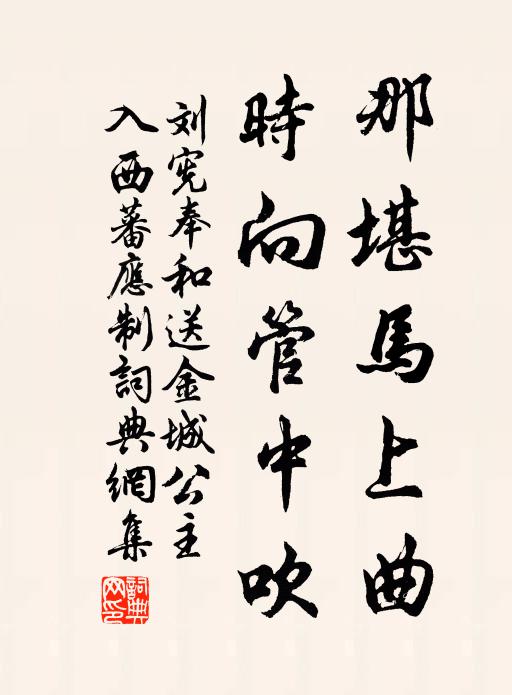 那堪馬上曲
時向管中吹
刘宪奉和送金城公主
入西蕃應制詞典網集
詞典网印